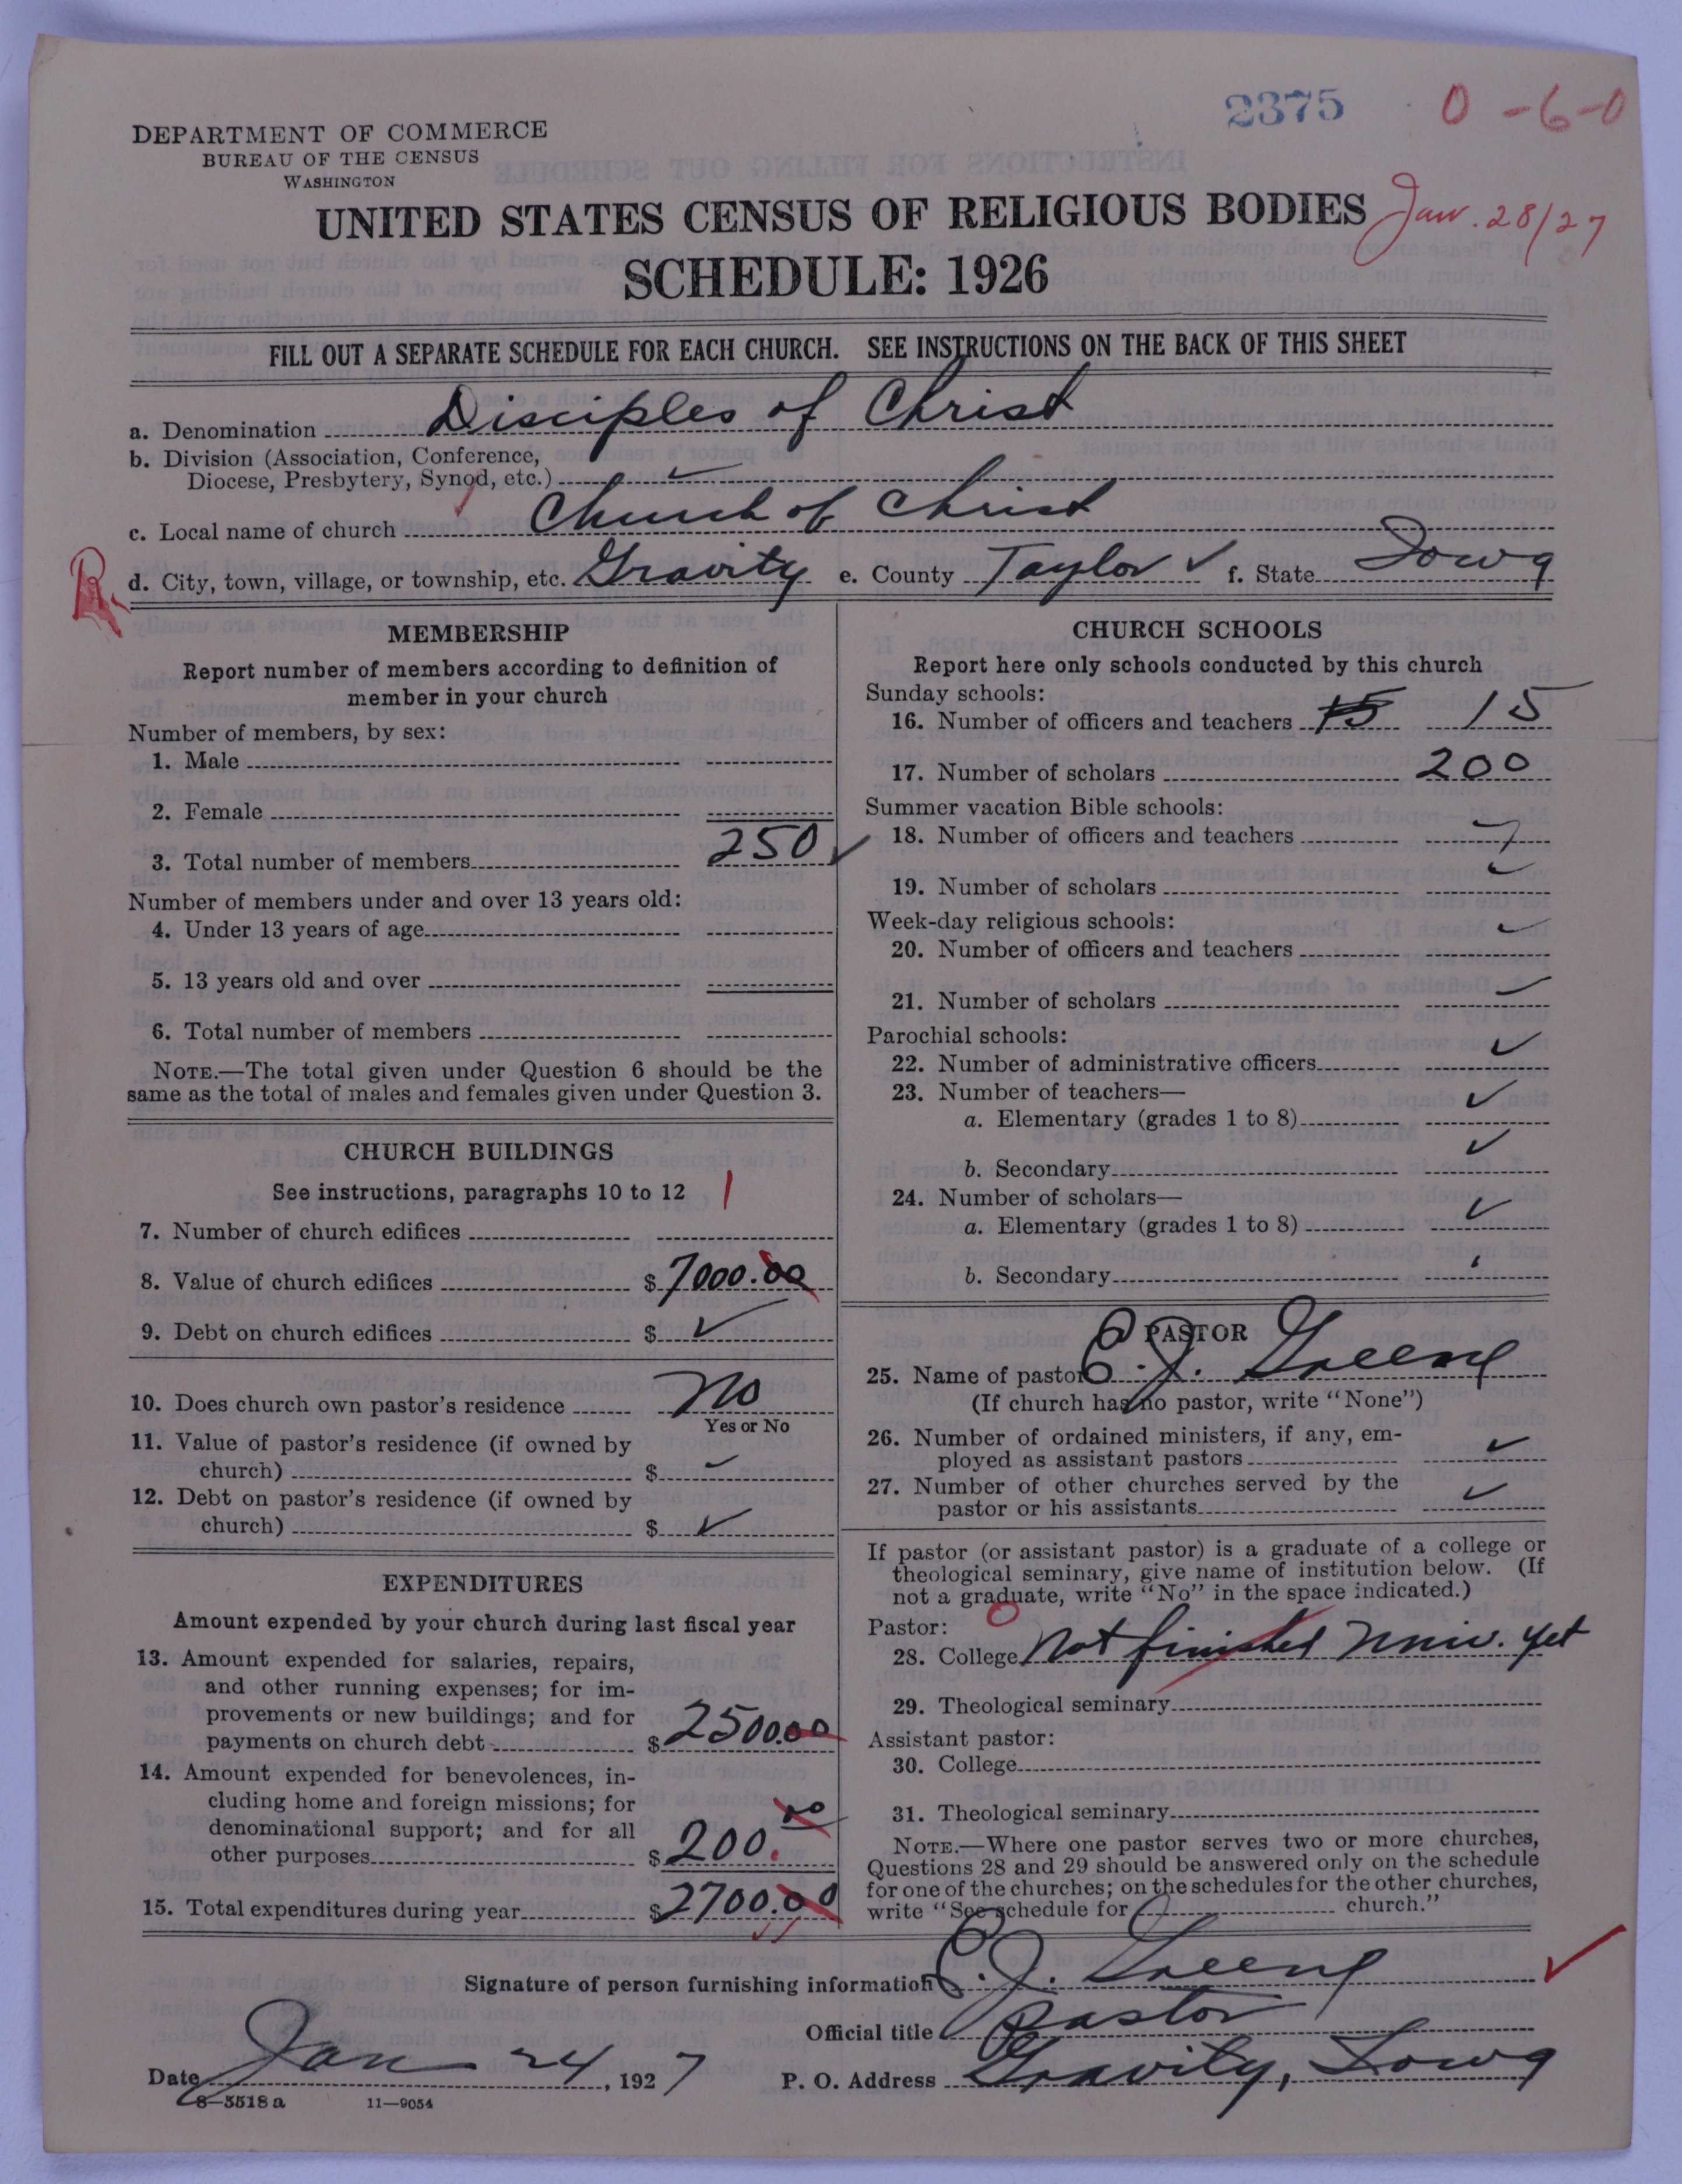 2375 0-6-0
DEPARTMENT OF COMMERCE
BUREAU OF THE CENSUS
WASHINGTON
UNITED STATES CENSUS OF RELIGIOUS BODIES Jan. 28/27
SCHEDULE: 1926
FILL OUT A SEPARATE SCHEDULE FOR EACH CHURCH. SEE INSTRUCTIONS ON THE BACK OF THIS SHEET
a. Denomination Disciples of Christ
b. Division (Association, Conference,
Diocese, Presbytery, Synod, etc.) ✓
c. Local name of church Church of Christ
R. d. City, town, village, or township, etc. Gravity e. County Taylor ✓ f. State Iowa
MEMBERSHIP
Report number of members according to definition of
member in your church
Number of members, by sex:
1. Male
2. Female
3. Total number of members 250 ✓
Number of members under and over 13 years old:
4. Under 13 years of age
5. 13 years old and over
6. Total number of members
NOTE.—The total given under Question 6 should be the
same as the total of males and females given under Question 3.
CHURCH BUILDINGS
See instructions, paragraphs 10 to 12 1
7. Number of church edifices
8. Value of church edifices $ 7000.00
9. Debt on church edifices $ ✓
10. Does church own pastor's residence No
Yes or No
11. Value of pastor's residence (if owned by
church) $ ✓
12. Debt on pastor's residence (if owned by
church) $ ✓
EXPENDITURES
Amount expended by your church during last fiscal year
13. Amount expended for salaries, repairs,
and other running expenses; for im-
provements or new buildings; and for
payments on church debt $ 2500.00
14. Amount expended for benevolences, in-
cluding home and foreign missions; for
denominational support; and for all
other purposes $ 200.00
15. Total expenditures during year $ 2700.00
CHURCH SCHOOLS
Report here only schools conducted by this church
Sunday schools:
16. Number of officers and teachers 15 15
17. Number of scholars 200
Summer vacation Bible schools:
18. Number of officers and teachers
19. Number of scholars ✓
Week-day religious schools:
20. Number of officers and teachers ✓
21. Number of scholars ✓
Parochial schools:
22. Number of administrative officers ✓
23. Number of teachers—
a. Elementary (grades 1 to 8) ✓
b. Secondary ✓
24. Number of scholars—
a. Elementary (grades 1 to 8) ✓
b. Secondary
PASTOR
25. Name of pastor C. J. Greene
(If church has no pastor, write "None")
26. Number of ordained ministers, if any, em-
ployed as assistant pastors ✓
27. Number of other churches served by the
pastor or his assistants ✓
If pastor (or assistant pastor) is a graduate of a college or
theological seminary, give name of institution below. (If
not a graduate, write "No" in the space indicated.)
Pastor: 0
28. College Not finished Univ. yet
29. Theological seminary
Assistant pastor:
30. College
31. Theological seminary
NOTE.—Where one pastor serves two or more churches,
Questions 28 and 29 should be answered only on the schedule
for one of the churches; on the schedules for the other churches,
write "See schedule for church."
Signature of person furnishing information C. J. Greene ✓
Official title Pastor
Date Jan 24, 1927 P. O. Address Gravity, Iowa
8—5518 a 11—9054